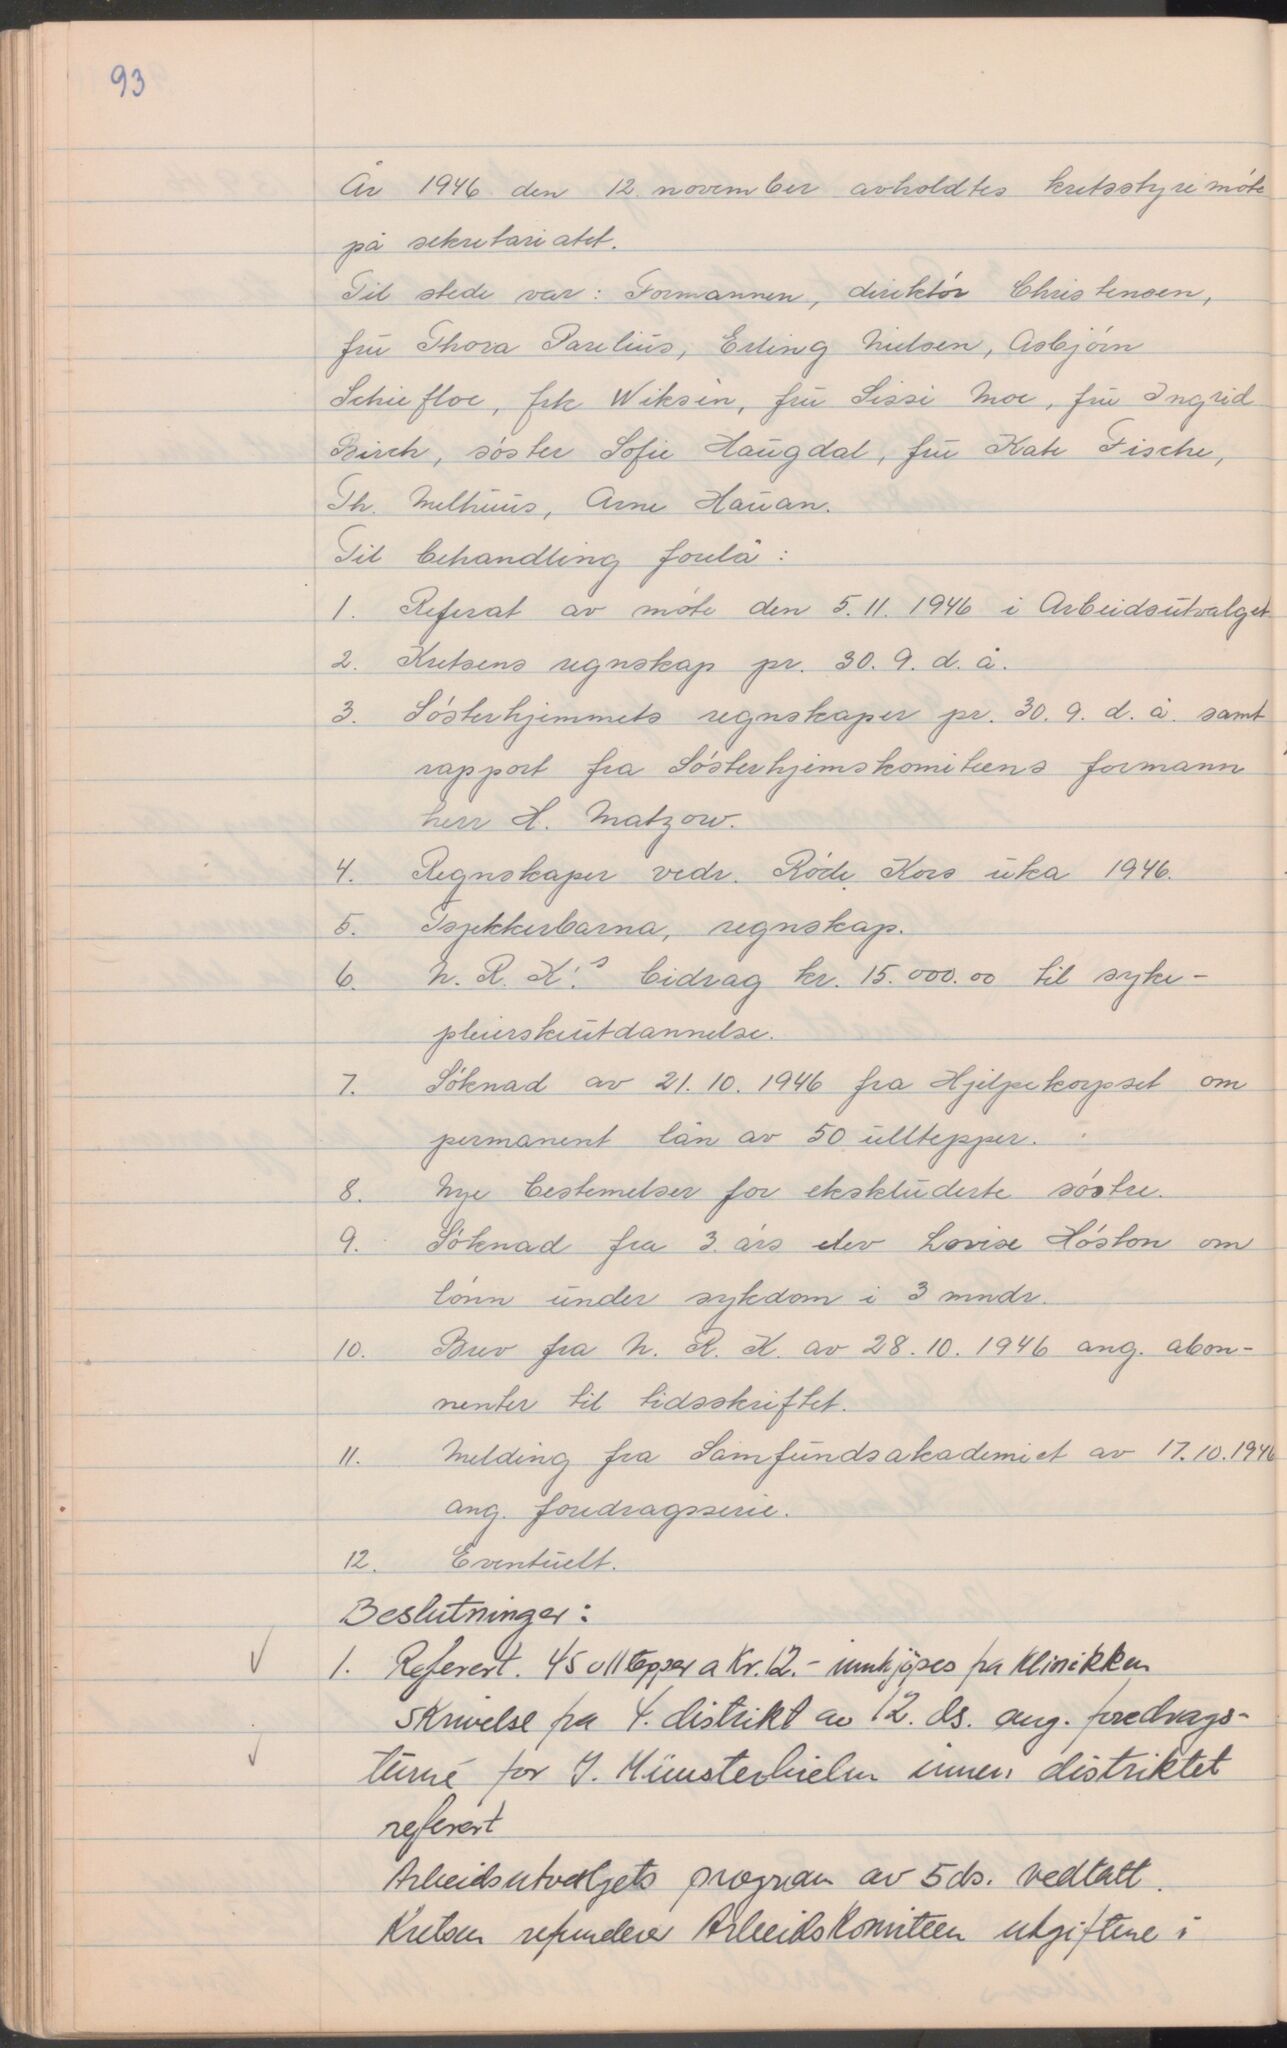 93
År 1946 den 12. november avholdtes kretsstyremöte
på sekretariatet.
Til stede var: Formannen, direktör Christensen,
fru Thora Parelius, Erling Nielsen, Asbjörn
Schiefloe, frk Wiksén, fru Sissi Moe, fru Ingrid
Birch, söster Sofie Haugdal, fru Kate Fische,
Th. Melhuus, Arne Hauan.
Til behandling forelå:
1. Referat av möte den 5.11.1946 i Arbeidsutvalget
2. Kretsens regnskap pr. 30.9.d.å.
3. Sösterhjemmets regnskaper pr. 30.9.d.å. samt
rapport fra Sösterhjemskomiteens formann
herr H. Matzow.
4. Regnskaper vedr. Röde Kors uka 1946.
5. Tsjekkerbarna, regnskap.
6. N.R.K.'s bidrag kr. 15.000.00 til syke-
pleierskeutdannelse.
7. Söknad av 21.10.1946 fra Hjelpekorpset om
permanent lån av 50 ulltepper.
8. Nye bestemelser for ekskluderte söstre.
9. Söknad fra 3. års elev Lovise Höston om
lönn under sykdom i 3 mndr.
10. Brev fra N.R.K. av 28.10.1946 ang. abon-
nenter til tidsskriftet.
11. Melding fra Samfundsakademiet av 17.10.1946
ang. foredragsserie.
12. Eventuelt.
Beslutninger:
1. Referert. 45 ulltepper a Kr. 12.- innkjöpes fra Klinikken
Skrivelse fra 4. distrikt av 12. ds. ang. foredrags-
turné for J. Münsterhielm innen distriktet
referert
Arbeidsutvalgets program av 5 ds. vedtatt.
Kretsen refunderer Arbeidskomiteen utgiftene i